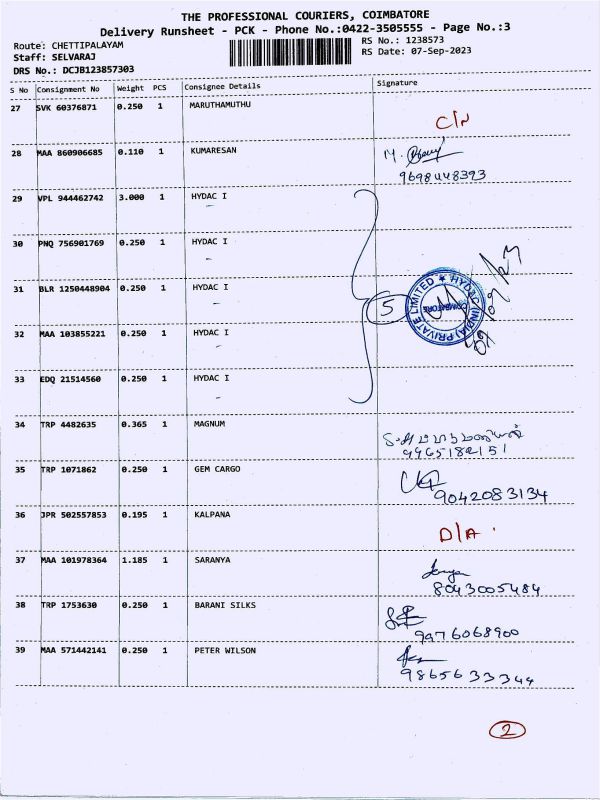 THE PROFESSIONAL COURIERS, COIMBATORE
Delivery Runsheet - PCK - Phone No.:0422-3505555 - Page No.:3
Route: CHETTIPALAYAM
RS No.: 1238573
Staff: SELVARAJ
RS Date: 07-Sep-2023
DRS No.: DCJB123857303
S No Consignment No Weight PCS Consignee Details Signature
27 SVK 60376871 0.250 1 MARUTHAMUTHU
C/N
28 MAA 860906685 0.110 1 KUMARESAN
M.
9698448393
29 VPL 944462742 3.000 1 HYDAC I
30 PNQ 756901769 0.250 1 HYDAC I
31 BLR 1250448904 0.250 1 HYDAC I
5
HYDAC (INDIA) PRIVATE LIMITED ★
COIMBATORE
32 MAA 103855221 0.250 1 HYDAC I
33 EDQ 21514560 0.250 1 HYDAC I
34 TRP 4482635 0.365 1 MAGNUM
9965182151
35 TRP 1071862 0.250 1 GEM CARGO
9042083134
36 JPR 502557853 0.195 1 KALPANA
D/A.
37 MAA 101978364 1.185 1 SARANYA
8043005484
38 TRP 1753630 0.250 1 BARANI SILKS
9976068900
39 MAA 571442141 0.250 1 PETER WILSON
9865633344
2